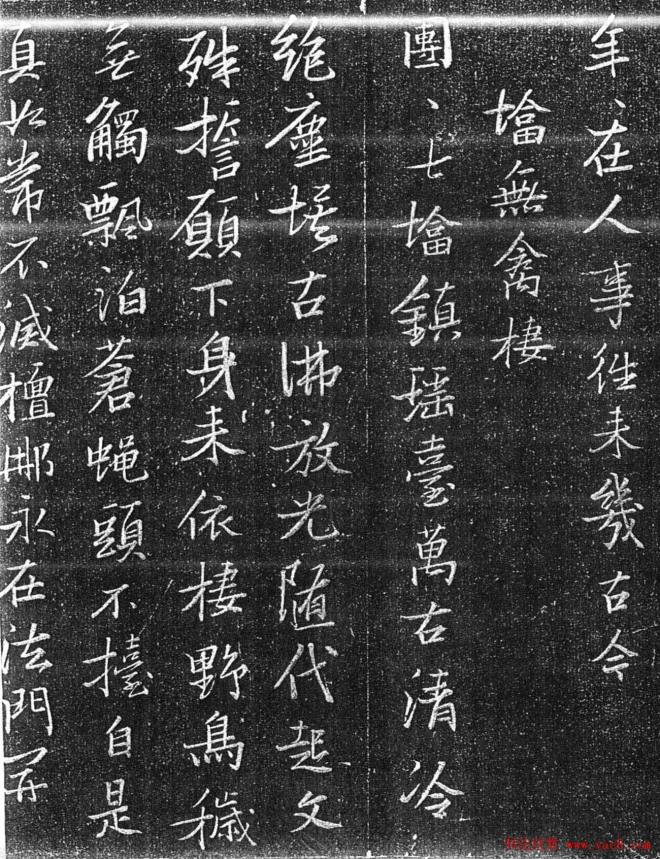 年、在人事往来幾古今
墖無禽棲
團、七墖鎮瑶臺萬古清冷
絶塵埃古佛放光随代起文
殊誓願下身来依棲野鳥穢
無觸飄泊蒼蝇頭不擡自是
真如常不滅檀那永在法門開
书法欣赏 www.yac8.com